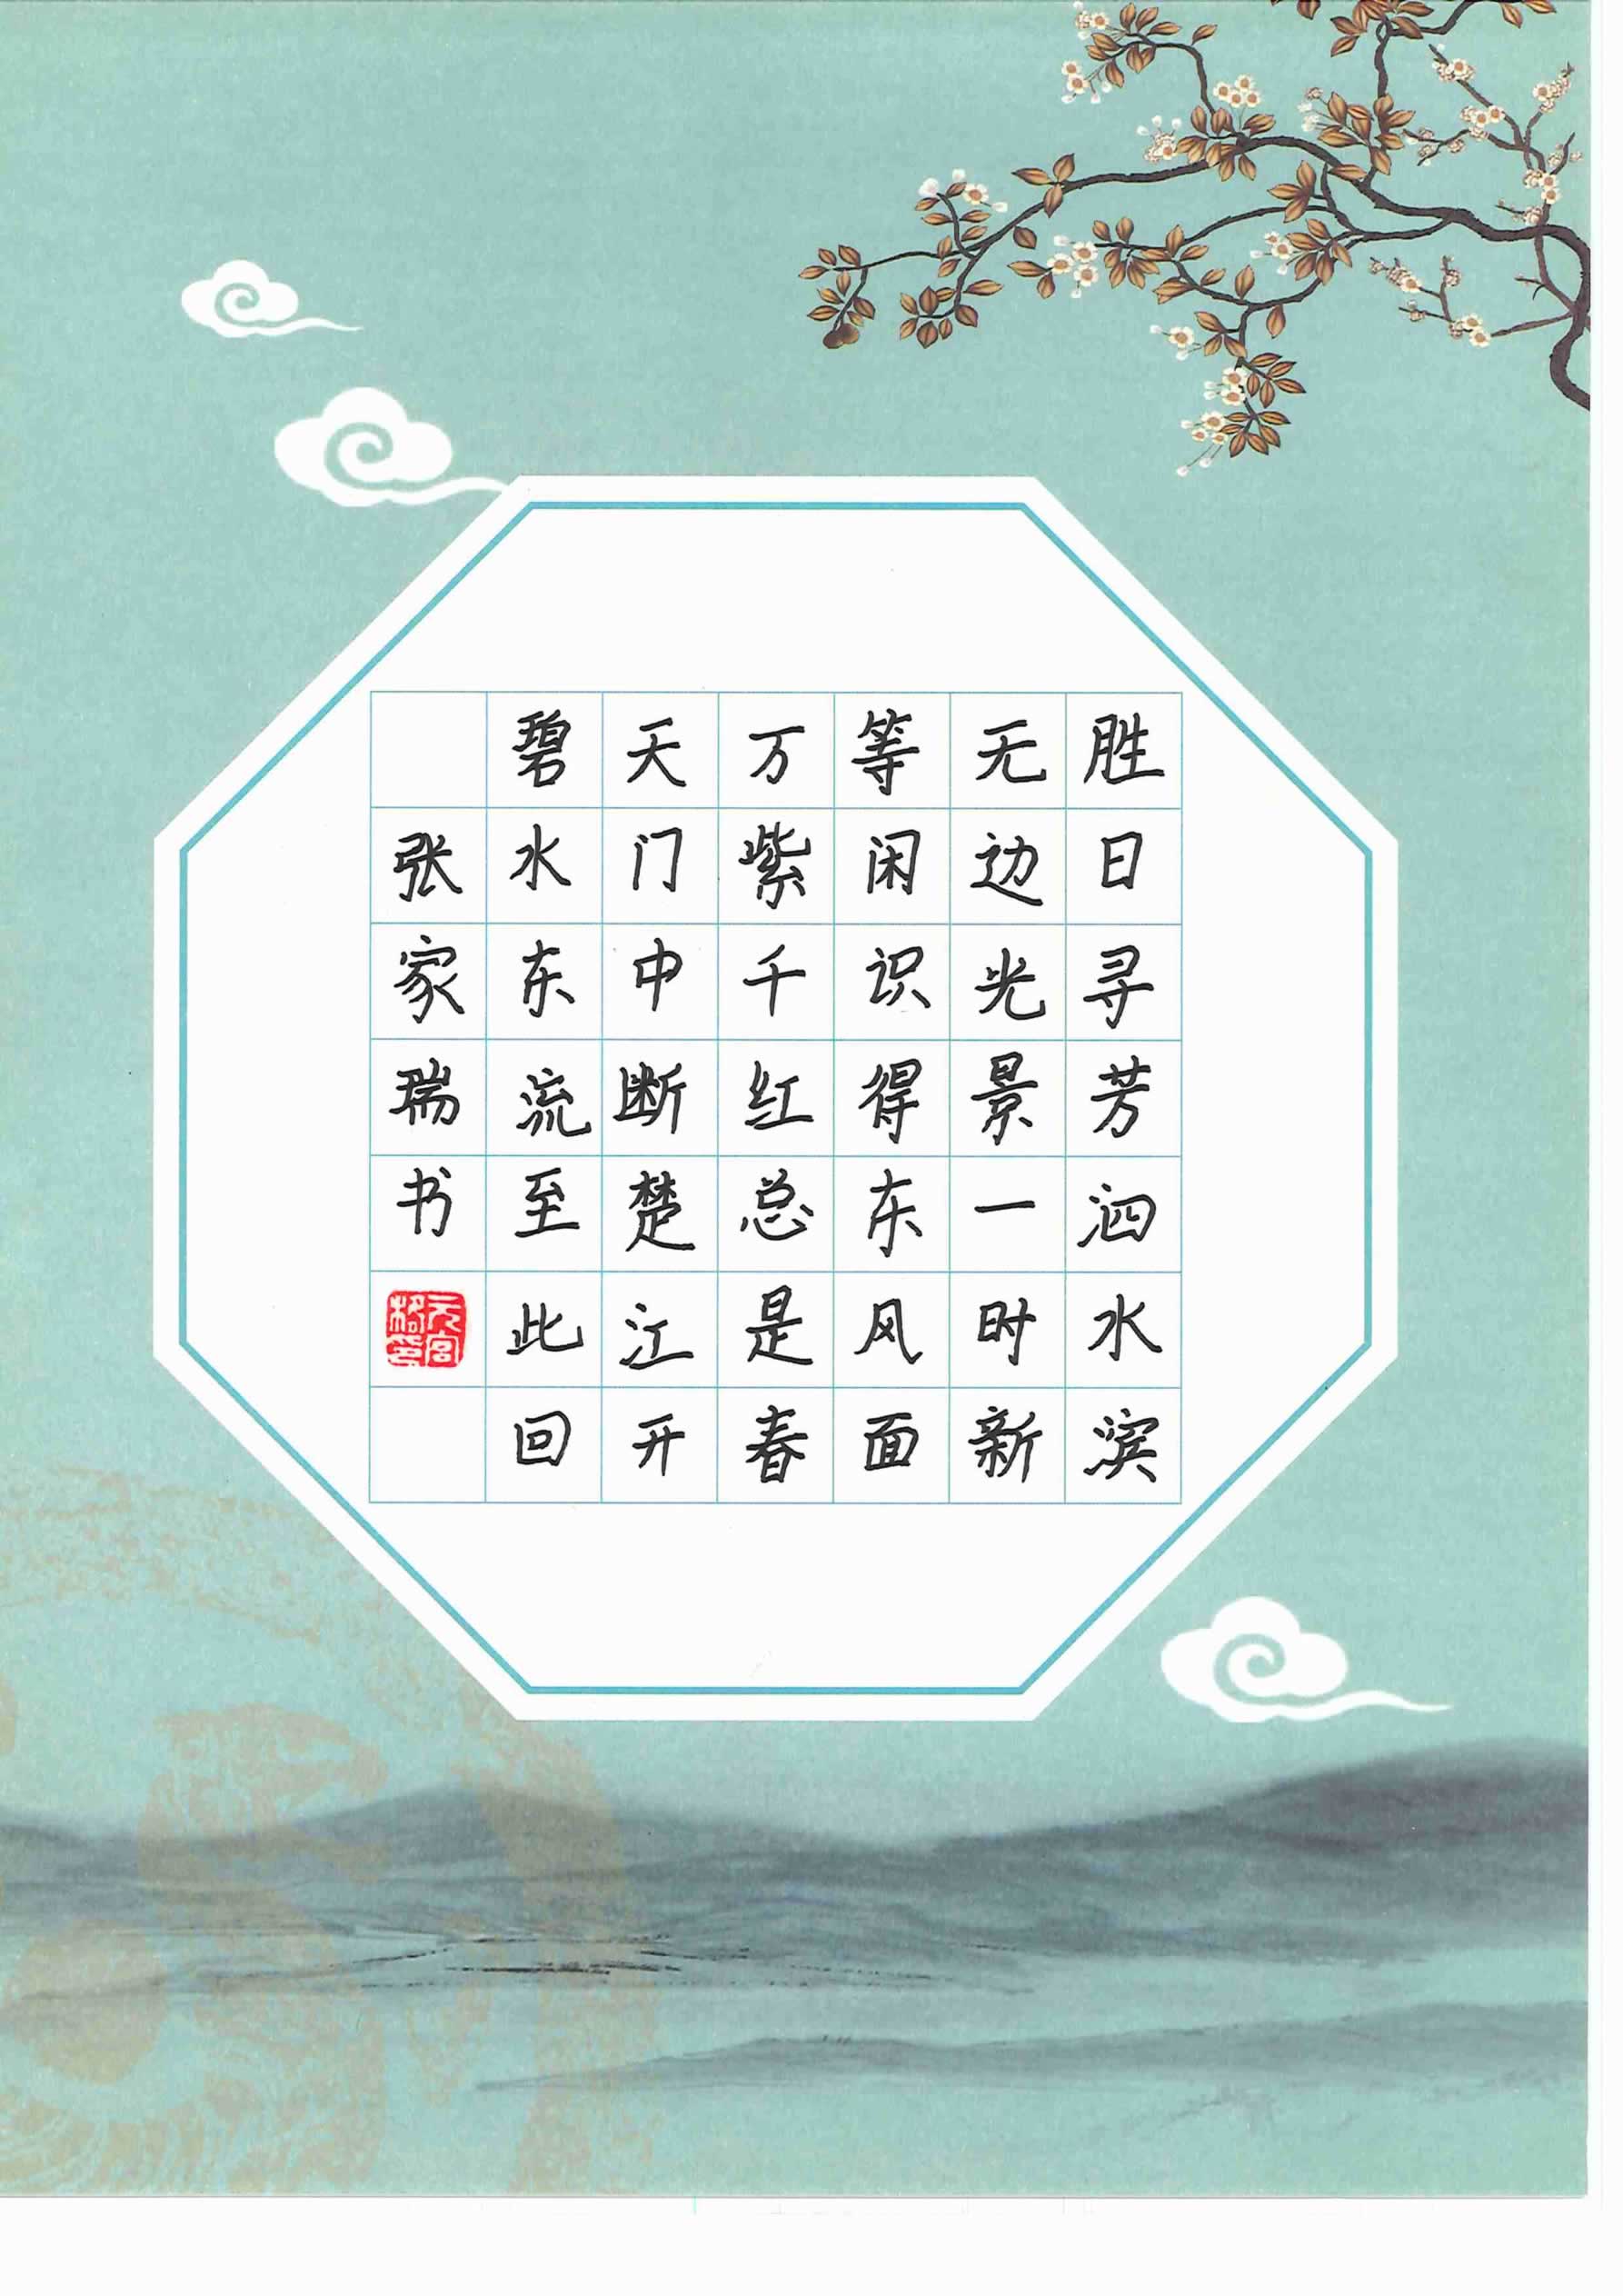 胜日寻芳泗水滨
无边光景一时新
等闲识得东风面
万紫千红总是春
天门中断楚江开
碧水东流至此回
张家瑞书